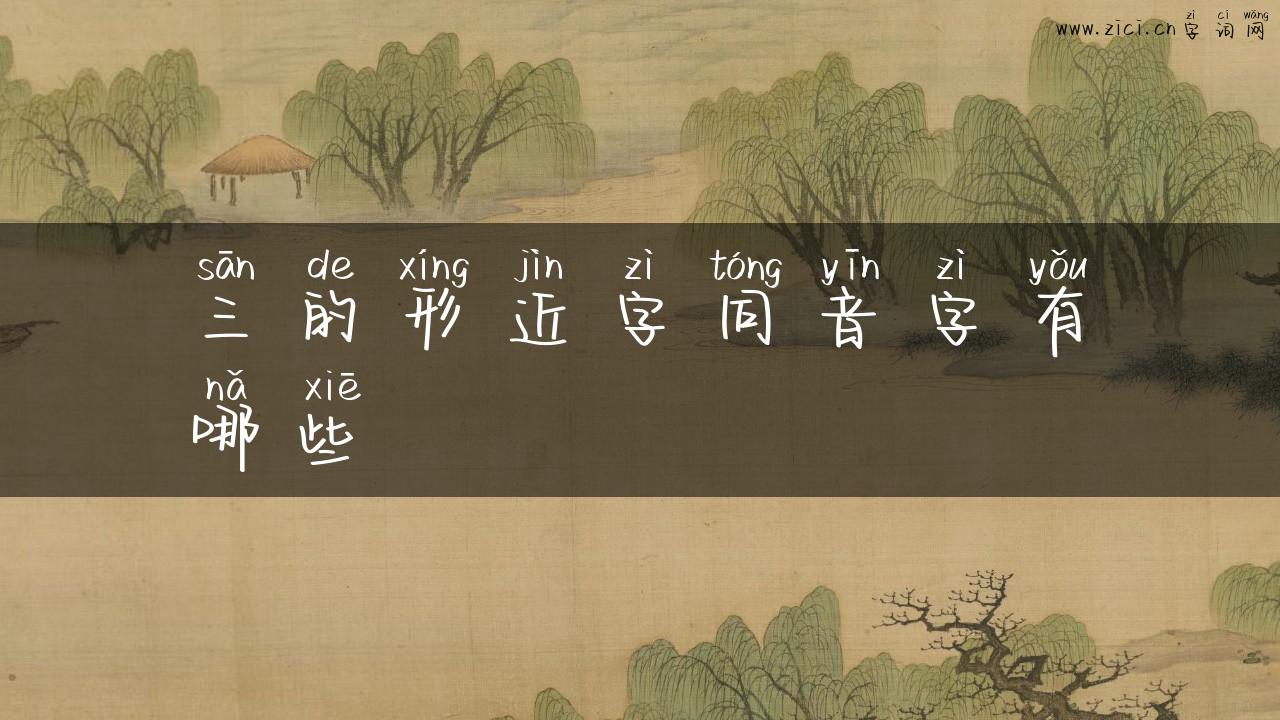 zì cí wǎng
www.zici.cn 字词网
sān de xíng jìn zì tóng yīn zì yǒu
三的形近字同音字有
nǎ xiē
哪些